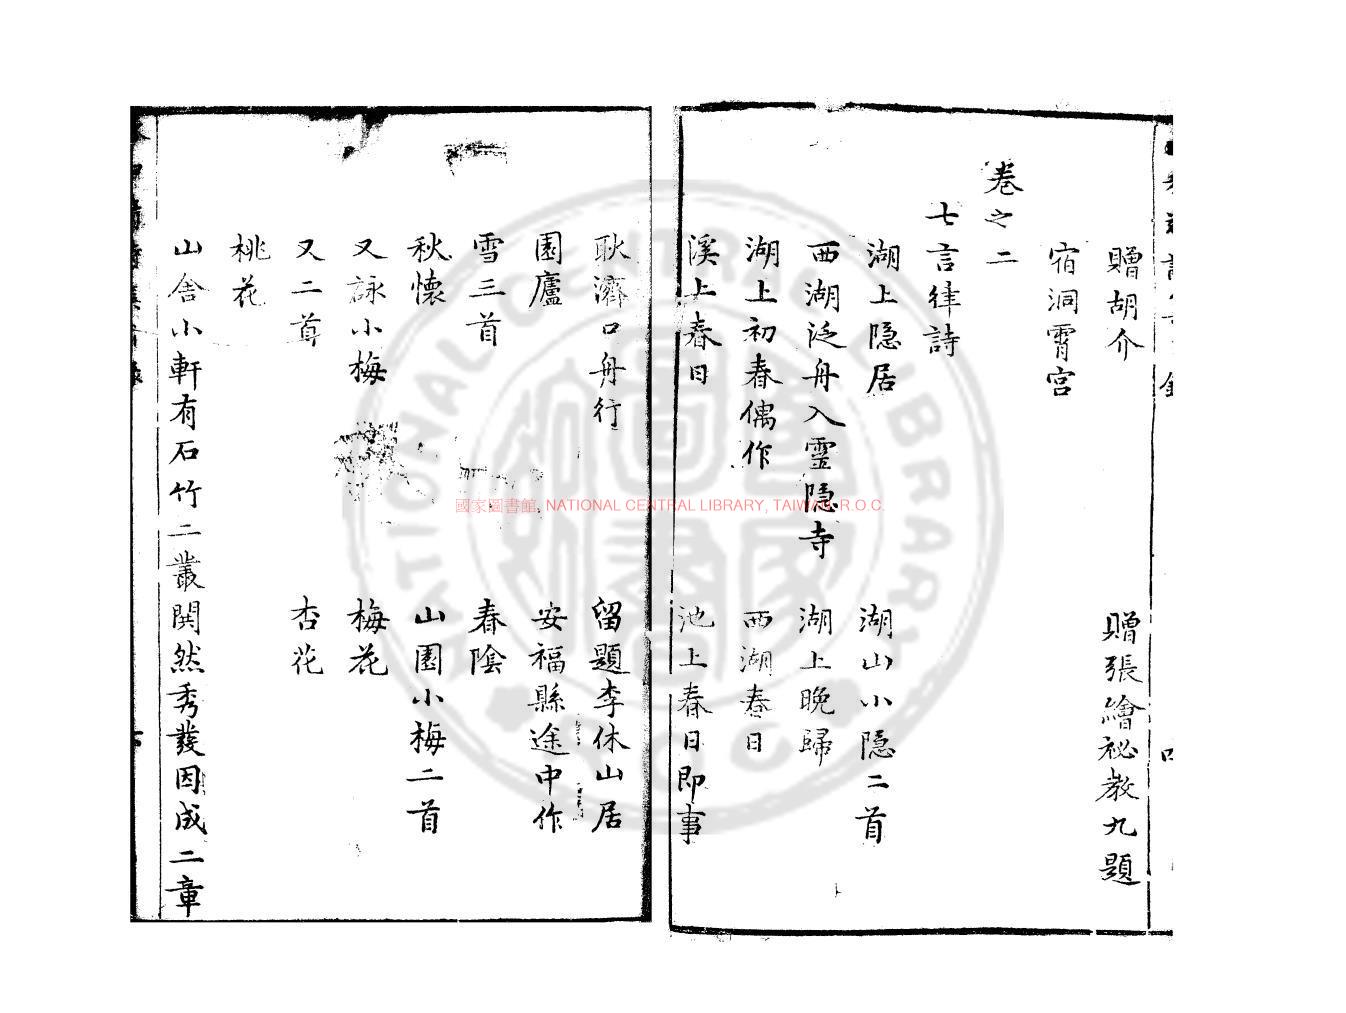 贈胡介
贈張繪祕教九題
宿洞霄宮
卷之二
七言律詩
湖上隐居
湖山小隐二首
西湖泛舟入霊隐寺
湖上晚歸
湖上初春偶作
西湖春日
溪上春日
池上春日即事
耿濟口舟行
留題李休山居
園廬
安福縣途中作
雪三首
春陰
秋懷
山園小梅二首
又詠小梅
梅花
又二首
杏花
桃花
山舎小軒有石竹二叢閧然秀發因成二章
國家圖書館, NATIONAL CENTRAL LIBRARY, TAIWAN, R.O.C.
NATIONAL CENTRAL LIBRARY